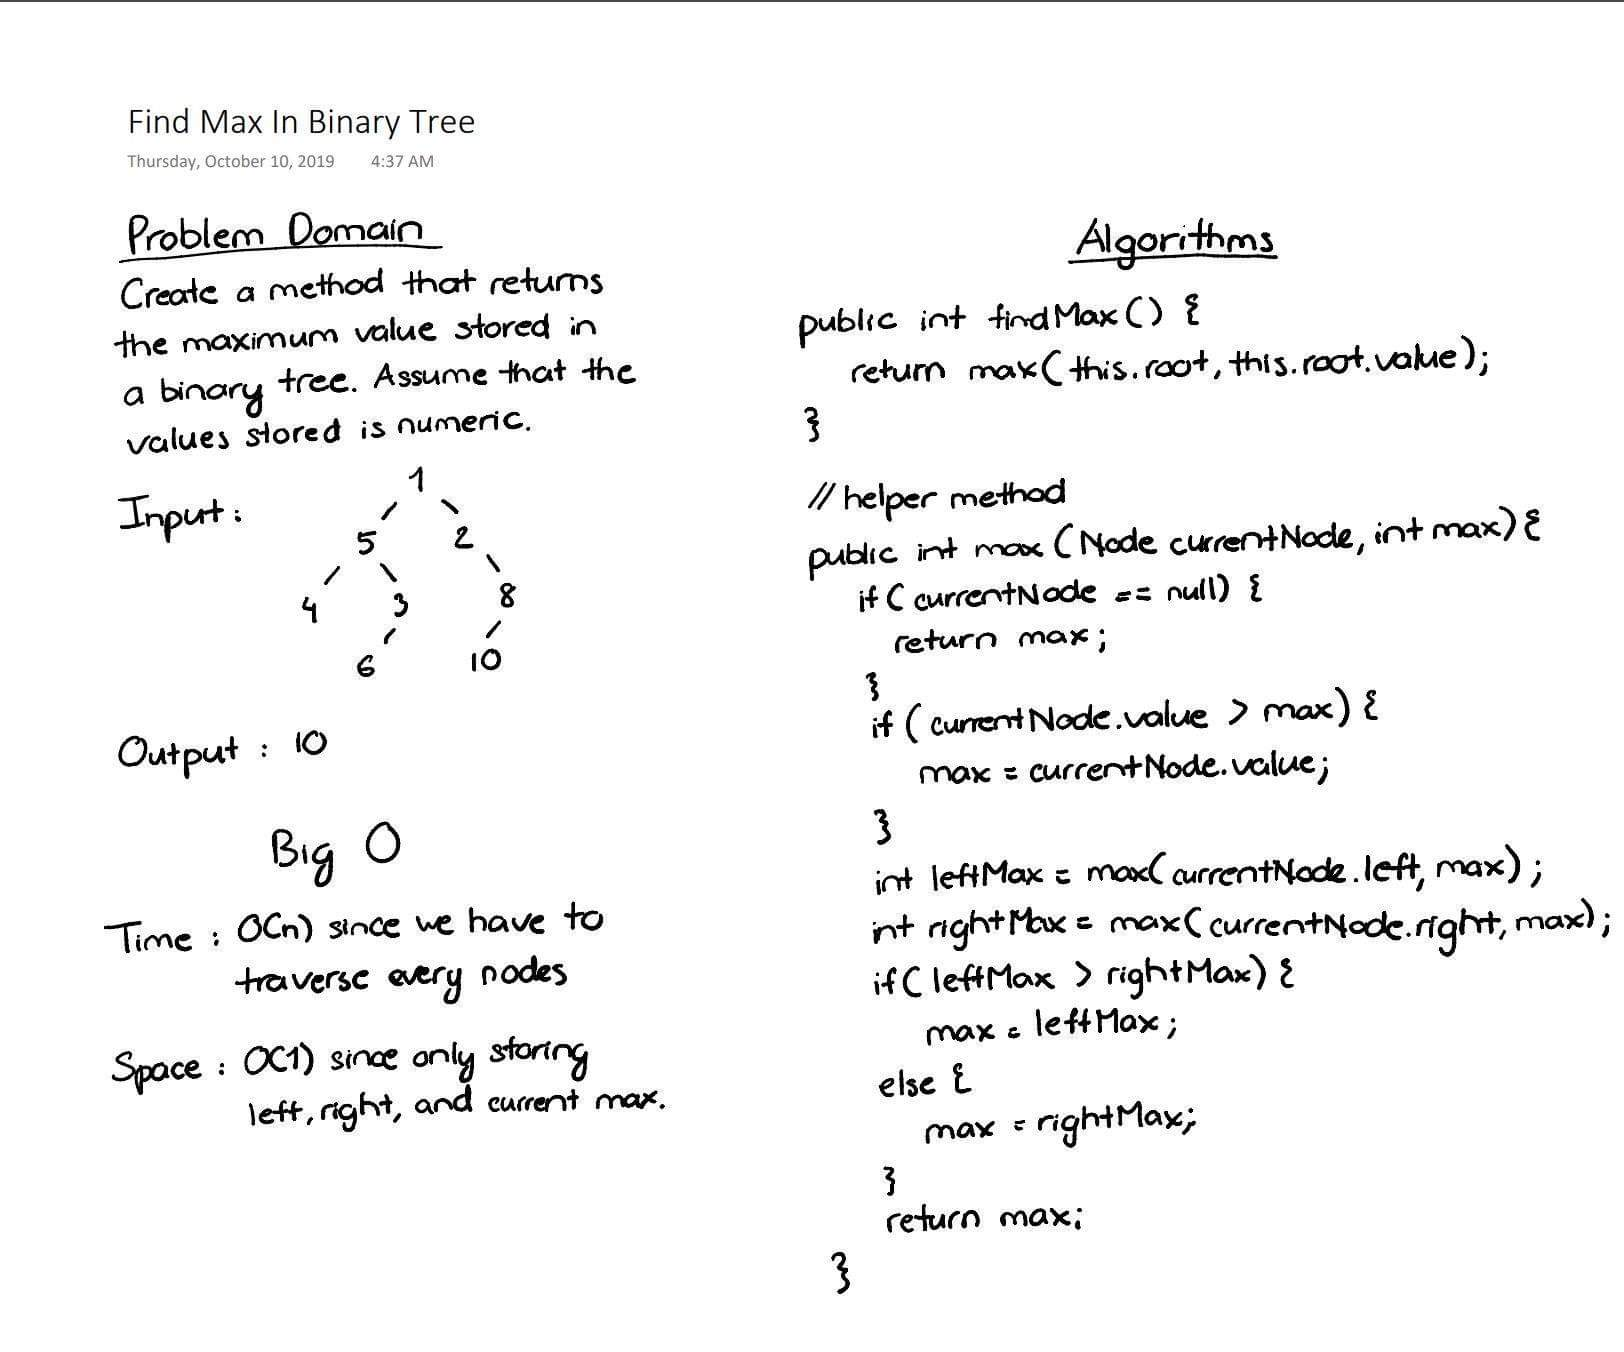 Find Max In Binary Tree
Thursday, October 10, 2019 4:37 AM
Problem Domain
Create a method that returns
the maximum value stored in
a binary tree. Assume that the
values stored is numeric.
Input:
1
5 2
4 3 8
6 10
Output: 10
Big O
Time: O(n) since we have to
traverse every nodes
Space: O(1) since only storing
left, right, and current max.
Algorithms
public int findMax() {
return max(this.root, this.root.value);
}
// helper method
public int max (Node currentNode, int max) {
if (currentNode == null) {
return max;
}
if (currentNode.value > max) {
max = currentNode.value;
}
int leftMax = max(currentNode.left, max);
int rightMax = max(currentNode.right, max);
if (leftMax > rightMax) {
max = leftMax;
else {
max = rightMax;
}
return max;
}